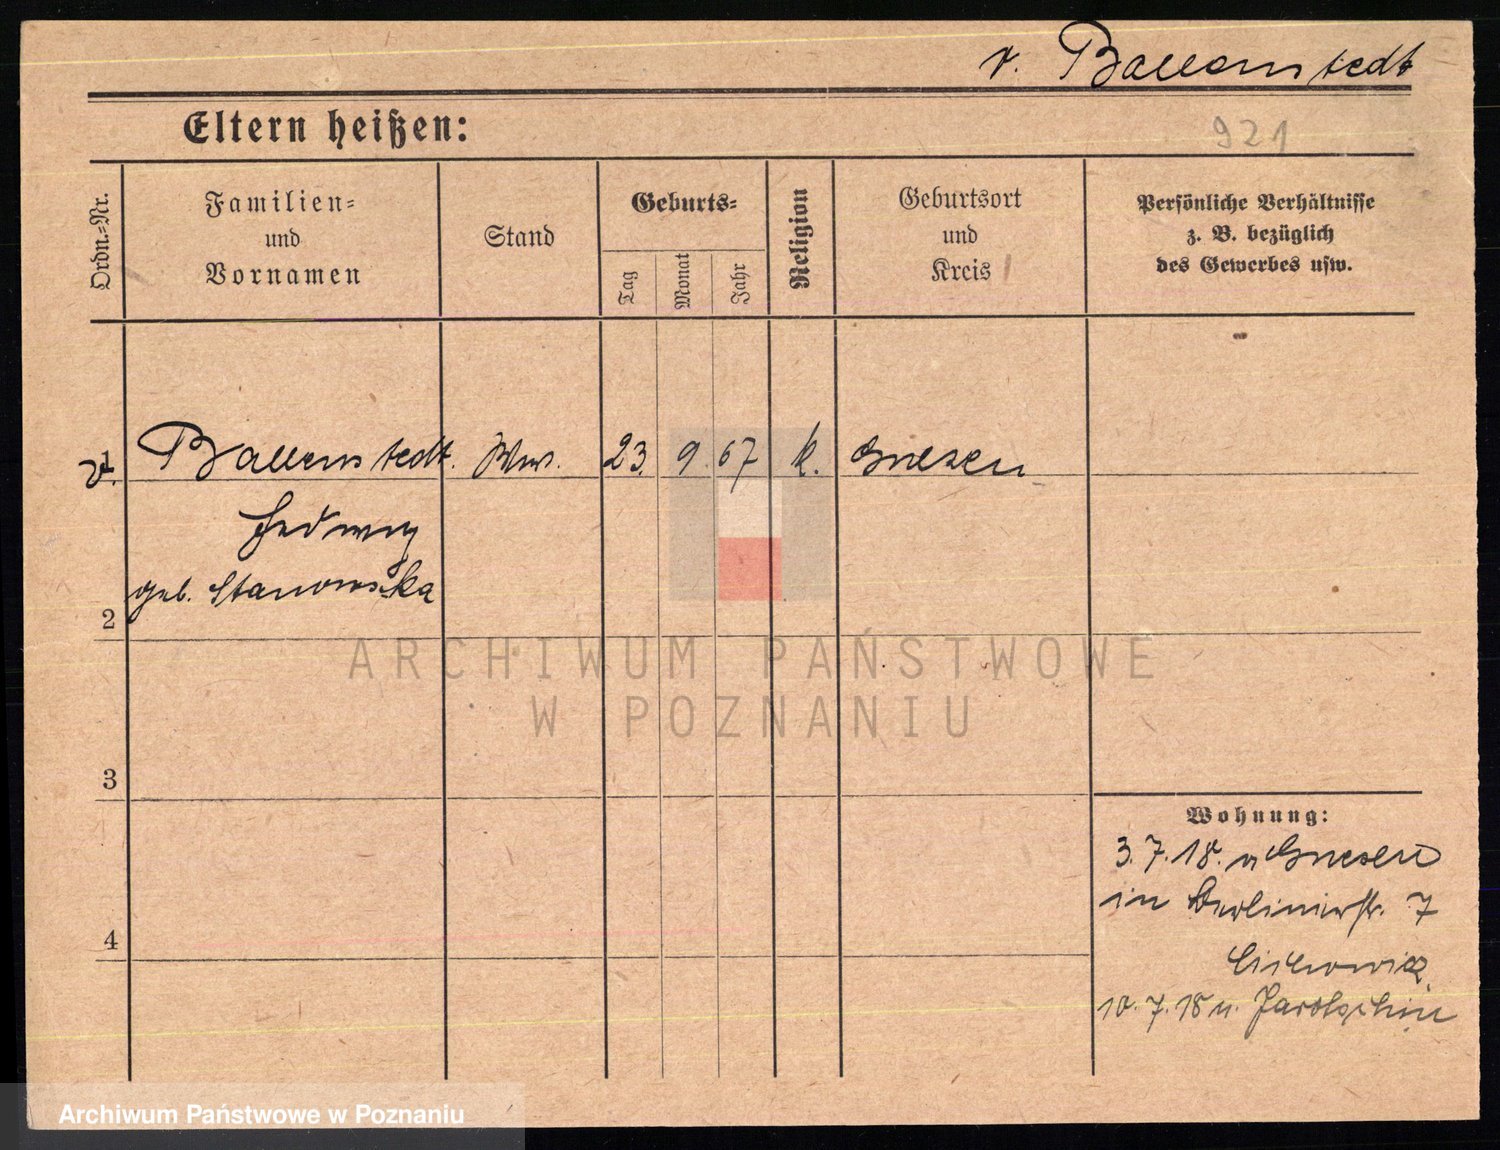 v. Ballenstedt
Eltern heißen:
921
Ordn.-Nr.
Familien-
und
Vornamen
Stand
Geburts-
Tag
Monat
Jahr
Religion
Geburtsort
und
Kreis
Persönliche Verhältnisse
z. B. bezüglich
des Gewerbes usw.
v. 1 Ballenstedt. Ww. 23. 9. 67 k. Gnesen
Hedwig
geb. Stanowska
2
3
4
Wohnung:
3.7.18. v. Gnesen
in Berlinerstr. 7
10.7.18 n. Jarotschin
ARCHIWUM PAŃSTWOWE
W POZNANIU
Archiwum Państwowe w Poznaniu